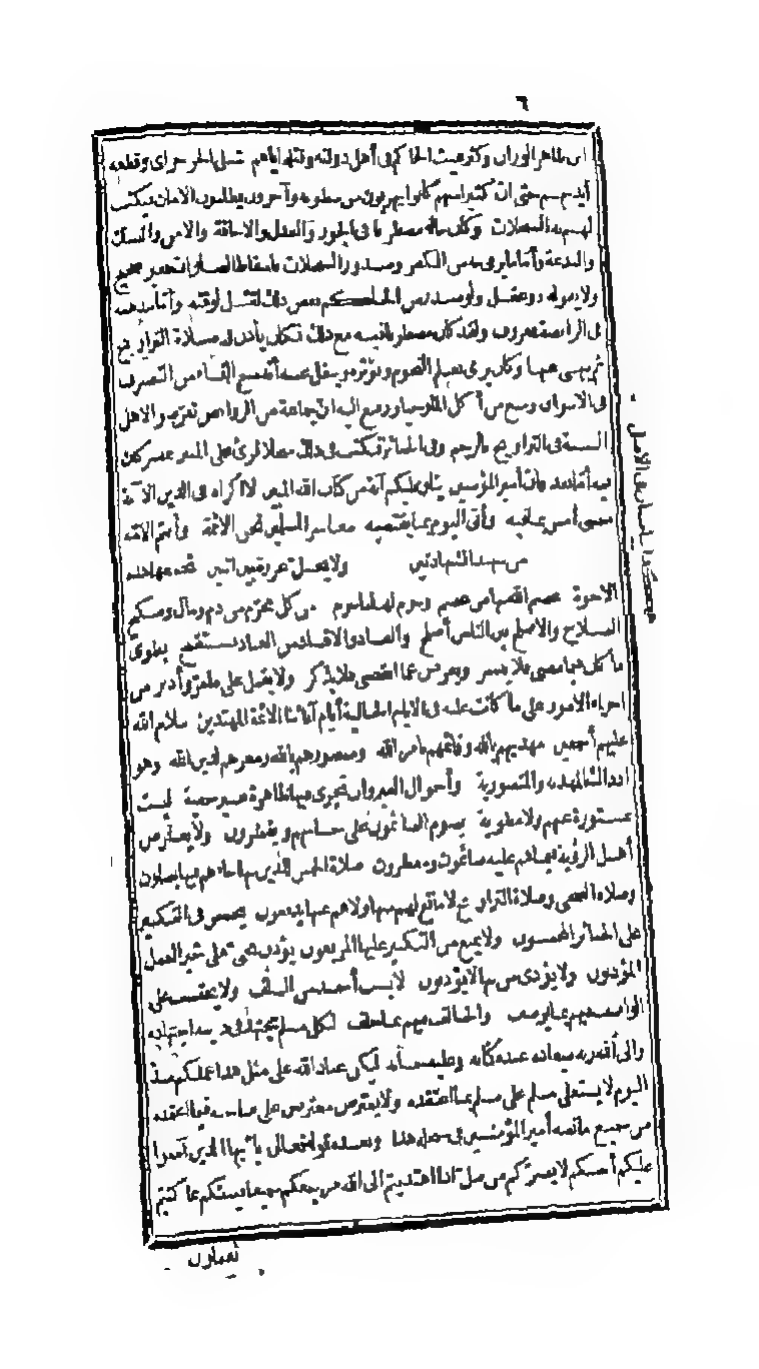 ٦
ابن طاهر الوزان وكثر عيث الحاكم فى أهل دولته وقتله اياهم مثل الجرجراى وقطعه
أيديهم حتى ان كثيرا منهم كانوا يهربون من سطوته وآخرون يطلبون الامان فيكتب
لهم به السجلات وكان حاله مضطربا فى الجور والعدل والاخافة والامن والنسك
والبدعة وأما ما يرمى به من الكفر وصدور السجلات باسقاط الصلوات فغير صحيح
ولا يقوله ذو عقل ولو صدر من الحاكم بعض ذلك لقتل لوقته وأما مذهبه
فى الرافضة فمعروف ولقد كان مضطربا فيه مع ذلك فكان يأذن فى صلاة التراويح
ثم ينهى عنها وكان يرمى بعلم النجوم ويؤثره وينقل عنه أنه منع النساء من التصرف
فى الاسواق ومنع من أكل الملوخيا ورفع اليه ان جماعة من الروافض تعرضوا لاهل
السنة فى التراويح بالرجم وفى الجنائز فكتب فى ذلك سجلا قرئ على المنبر بمصر كان
فيه أما بعد فان أمير المؤمنين يتلو عليكم آية من كتاب الله المبين لا اكراه فى الدين الآية
مضى أمس بما فيه وأتى اليوم بما يقتضيه معاشر المسلمين نحن الائمة وأنتم الامة
من شهد الشهادتين ولا يحل عروة بين اثنين تجمعهما هذه
الاخوة عصم الله منها من عصم وحرم لها ما حرم من كل محرم من دم ومال ومنكح
الصلاح والاصلح بين الناس أصلح والفساد والافساد من العباد يستقبح يطوى
ما كان فيما مضى فلا ينشر ويعرض عما انقضى فلا يذكر ولا يقبل على ما مر وأدبر من
اجراء الامور على ما كانت عليه فى الايام الخالية أيام آبائنا الائمة المهتدين سلام الله
عليهم أجمعين مهديهم بالله وقائمهم بامر الله ومنصورهم بالله ومعزهم لدين الله وهو
اذ ذاك بالمهدية والمنصورية وأحوال القيروان تجرى فيها ظاهرة غير خفية ليست
بمستورة عنهم ولا مطوية يصوم الصائمون على حسابهم ويفطرون ولا يعارض
أهل الرؤية فيما هم عليه صائمون ومفطرون صلاة الخمس للذين بها جاءهم فيها يصلون
وصلاة الضحى وصلاة التراويح لا مانع لهم منها ولا هم عنها يدفعون يخمس فى التكبير
على الجنائز المخمسون ولا يمنع من التكبير عليها المربعون يؤذن بحى على خير العمل
المؤذنون ولا يؤذى من بها لا يؤذنون لا يسب أحد من السلف ولا يحتسب على
الواصف فيهم بما يوصف والحالف منهم بما حلف لكل مسلم مجتهد فى دينه اجتهاده
والى الله ربه ميعاده عنده كتابه وعليه حسابه ليكن عباد الله على مثل هذا عملكم منذ
اليوم لا يستعلى مسلم على مسلم بما اعتقده ولا يعترض معترض على صاحبه فيما اعتمده
من جميع ما نصه أمير المؤمنين فى سجله هذا وبعده قوله تعالى يا أيها الذين آمنوا
عليكم أنفسكم لا يضركم من ضل اذا اهتديتم الى الله مرجعكم جميعا فينبئكم بما كنتم
تعملون
هكذا بياض فى الاصل